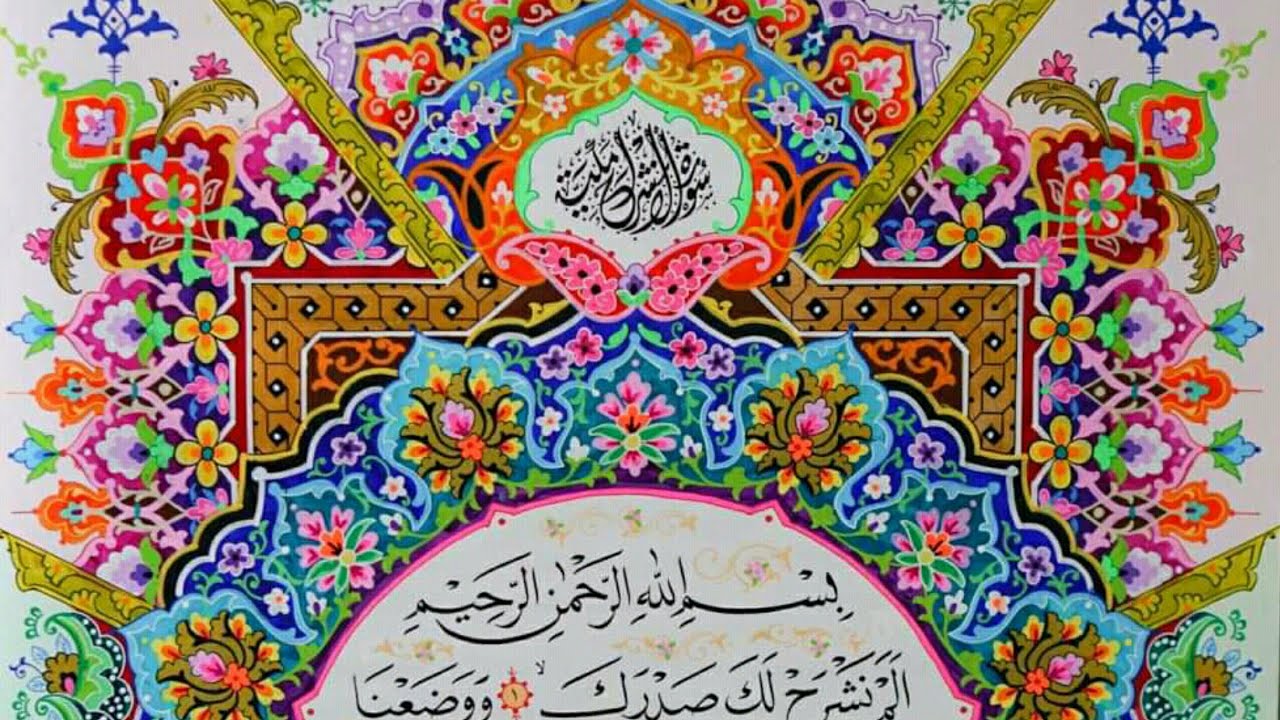 سورة الانشراح مكية
بِسْمِ اللهِ الرَّحْمٰنِ الرَّحِيْمِ
اَلَمْ نَشْرَحْ لَكَ صَدْرَكَ ۙ ١ وَوَضَعْنَا